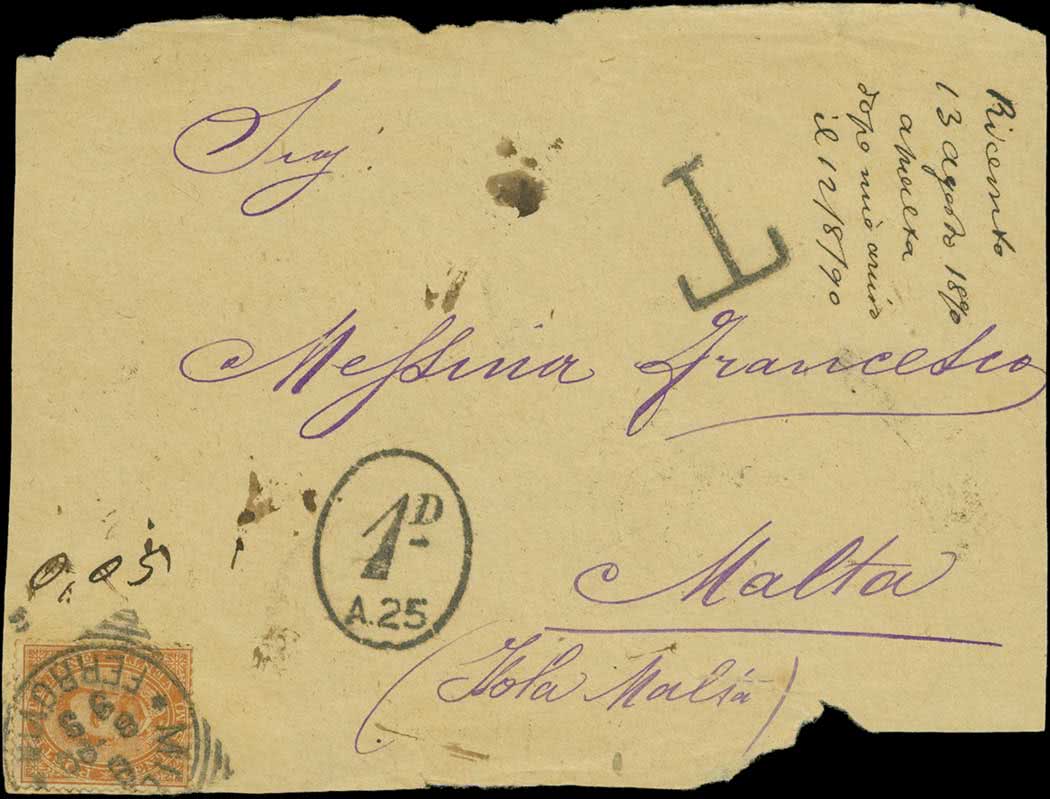 Sig
Messina Francesco
Malta
(Isola Malta)
Ricevuto
13 agosto 1890
aperta
dopo mio arrivo
il 12/8/90
T
1D
A.25
0,05
FERROVIA